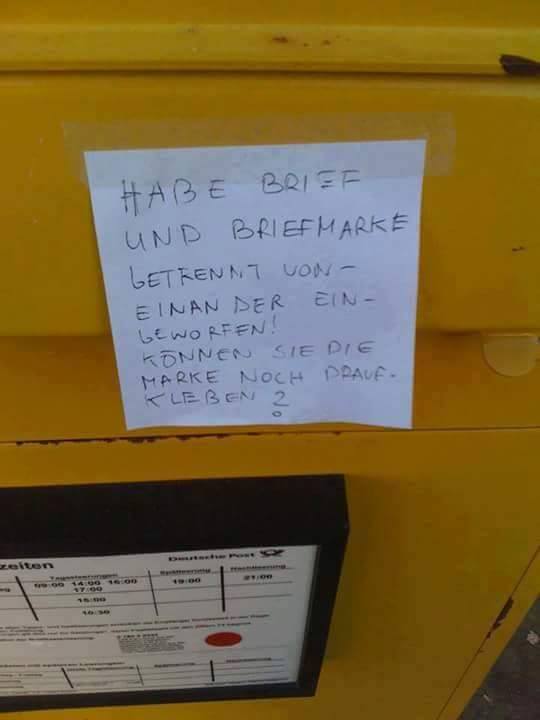 HABE BRIEF
UND BRIEFMARKE
GETRENNT VON-
EINANDER EIN-
GEWORFEN!
KÖNNEN SIE DIE
MARKE NOCH DRAUF-
KLEBEN?
zeiten
Deutsche Post
Tagesleerungen
Spätleerung
Nachtleerung
09:00 14:00 16:00
17:00
19:00
21:00
15:00
10:30